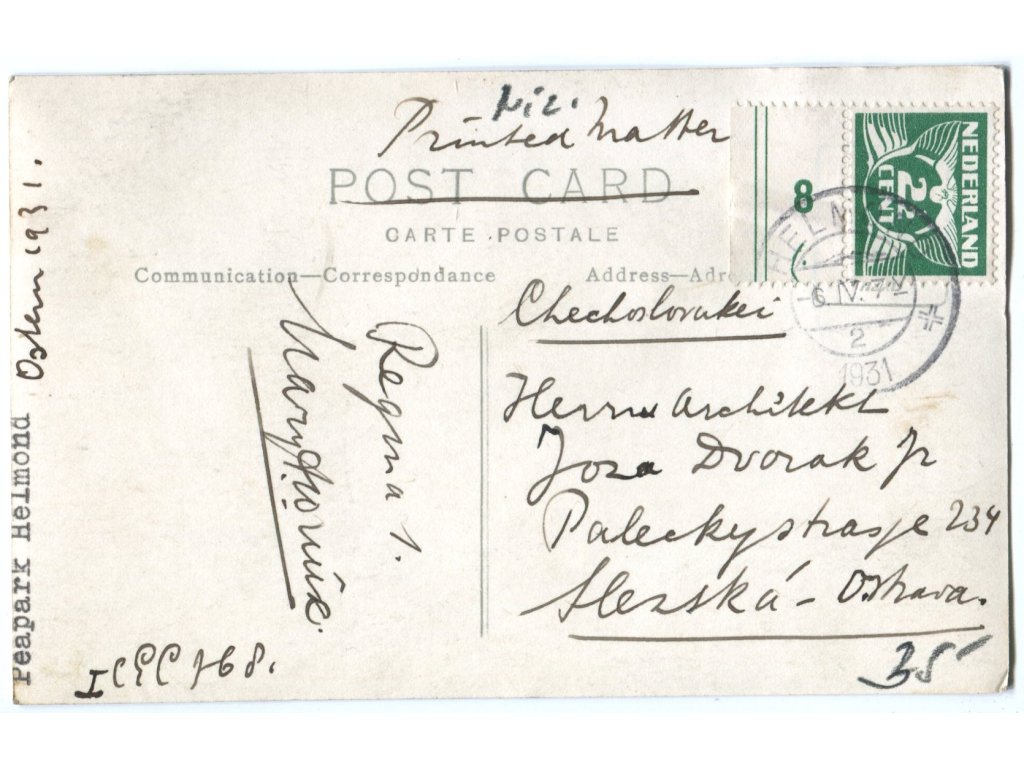 Printed Matter
POST CARD
CARTE POSTALE
Communication—Correspondance
Address—
NEDERLAND
2½
CENT
8
HELM
6 IV
2
1931
Chechoslovakei
Herrn Architekt
Joza Dvorak Jr
Paleckystrasje 234
Slezská - Ostrava.
35
Regina 1.
Peapark Helmond Ostern 1931.